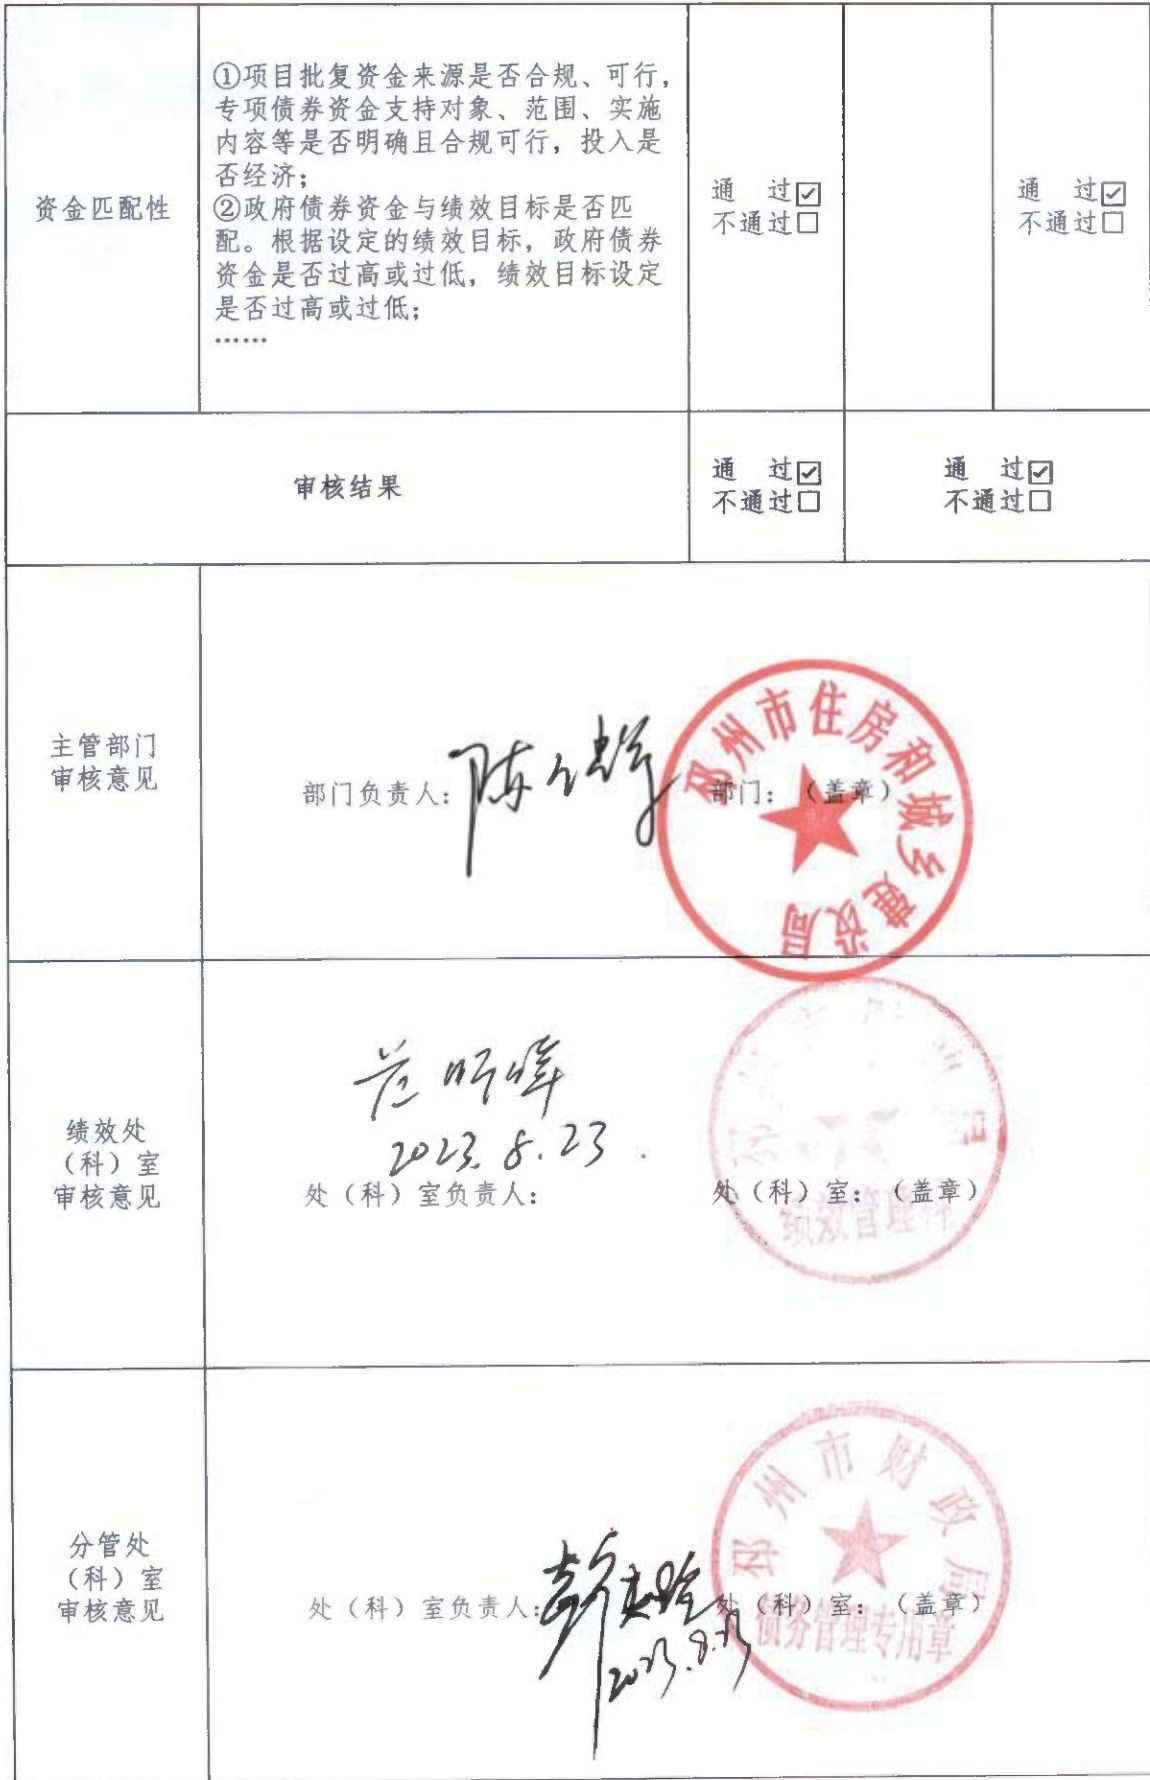 ①项目批复资金来源是否合规、可行，
专项债券资金支持对象、范围、实施
内容等是否明确且合规可行，投入是
否经济；
资金匹配性
②政府债券资金与绩效目标是否匹
配。根据设定的绩效目标，政府债券
资金是否过高或过低，绩效目标设定
是否过高或过低；
……
通 过☑
不通过☐
通 过☑
不通过☐
审核结果
通 过☑
不通过☐
通 过☑
不通过☐
主管部门
审核意见
部门负责人：
部门：（盖章）
邳州市住房和城乡建设局
绩效处
（科）室
审核意见
2023.8.23
处（科）室负责人：
处（科）室：（盖章）
绩效管理科
分管处
（科）室
审核意见
处（科）室负责人：
处（科）室：（盖章）
邳州市财政局
债务管理专用章